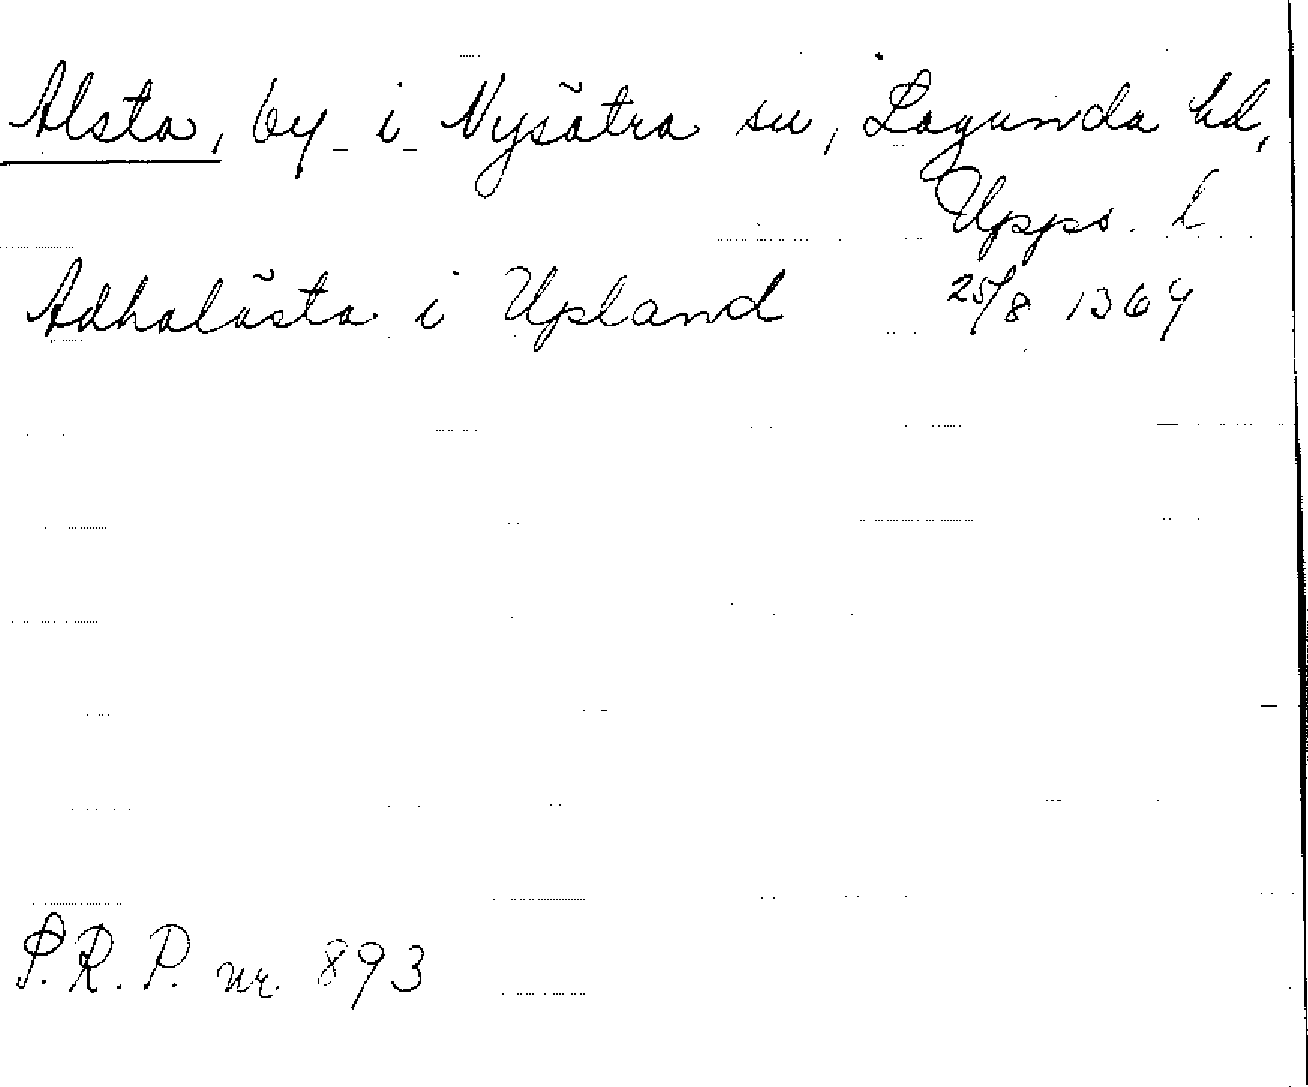 Alsta, by i Nysätra sn, Lagunda hd,
Upps. l
Adhalästa i Upland 25/8 1369
S.R.P. nr. 893